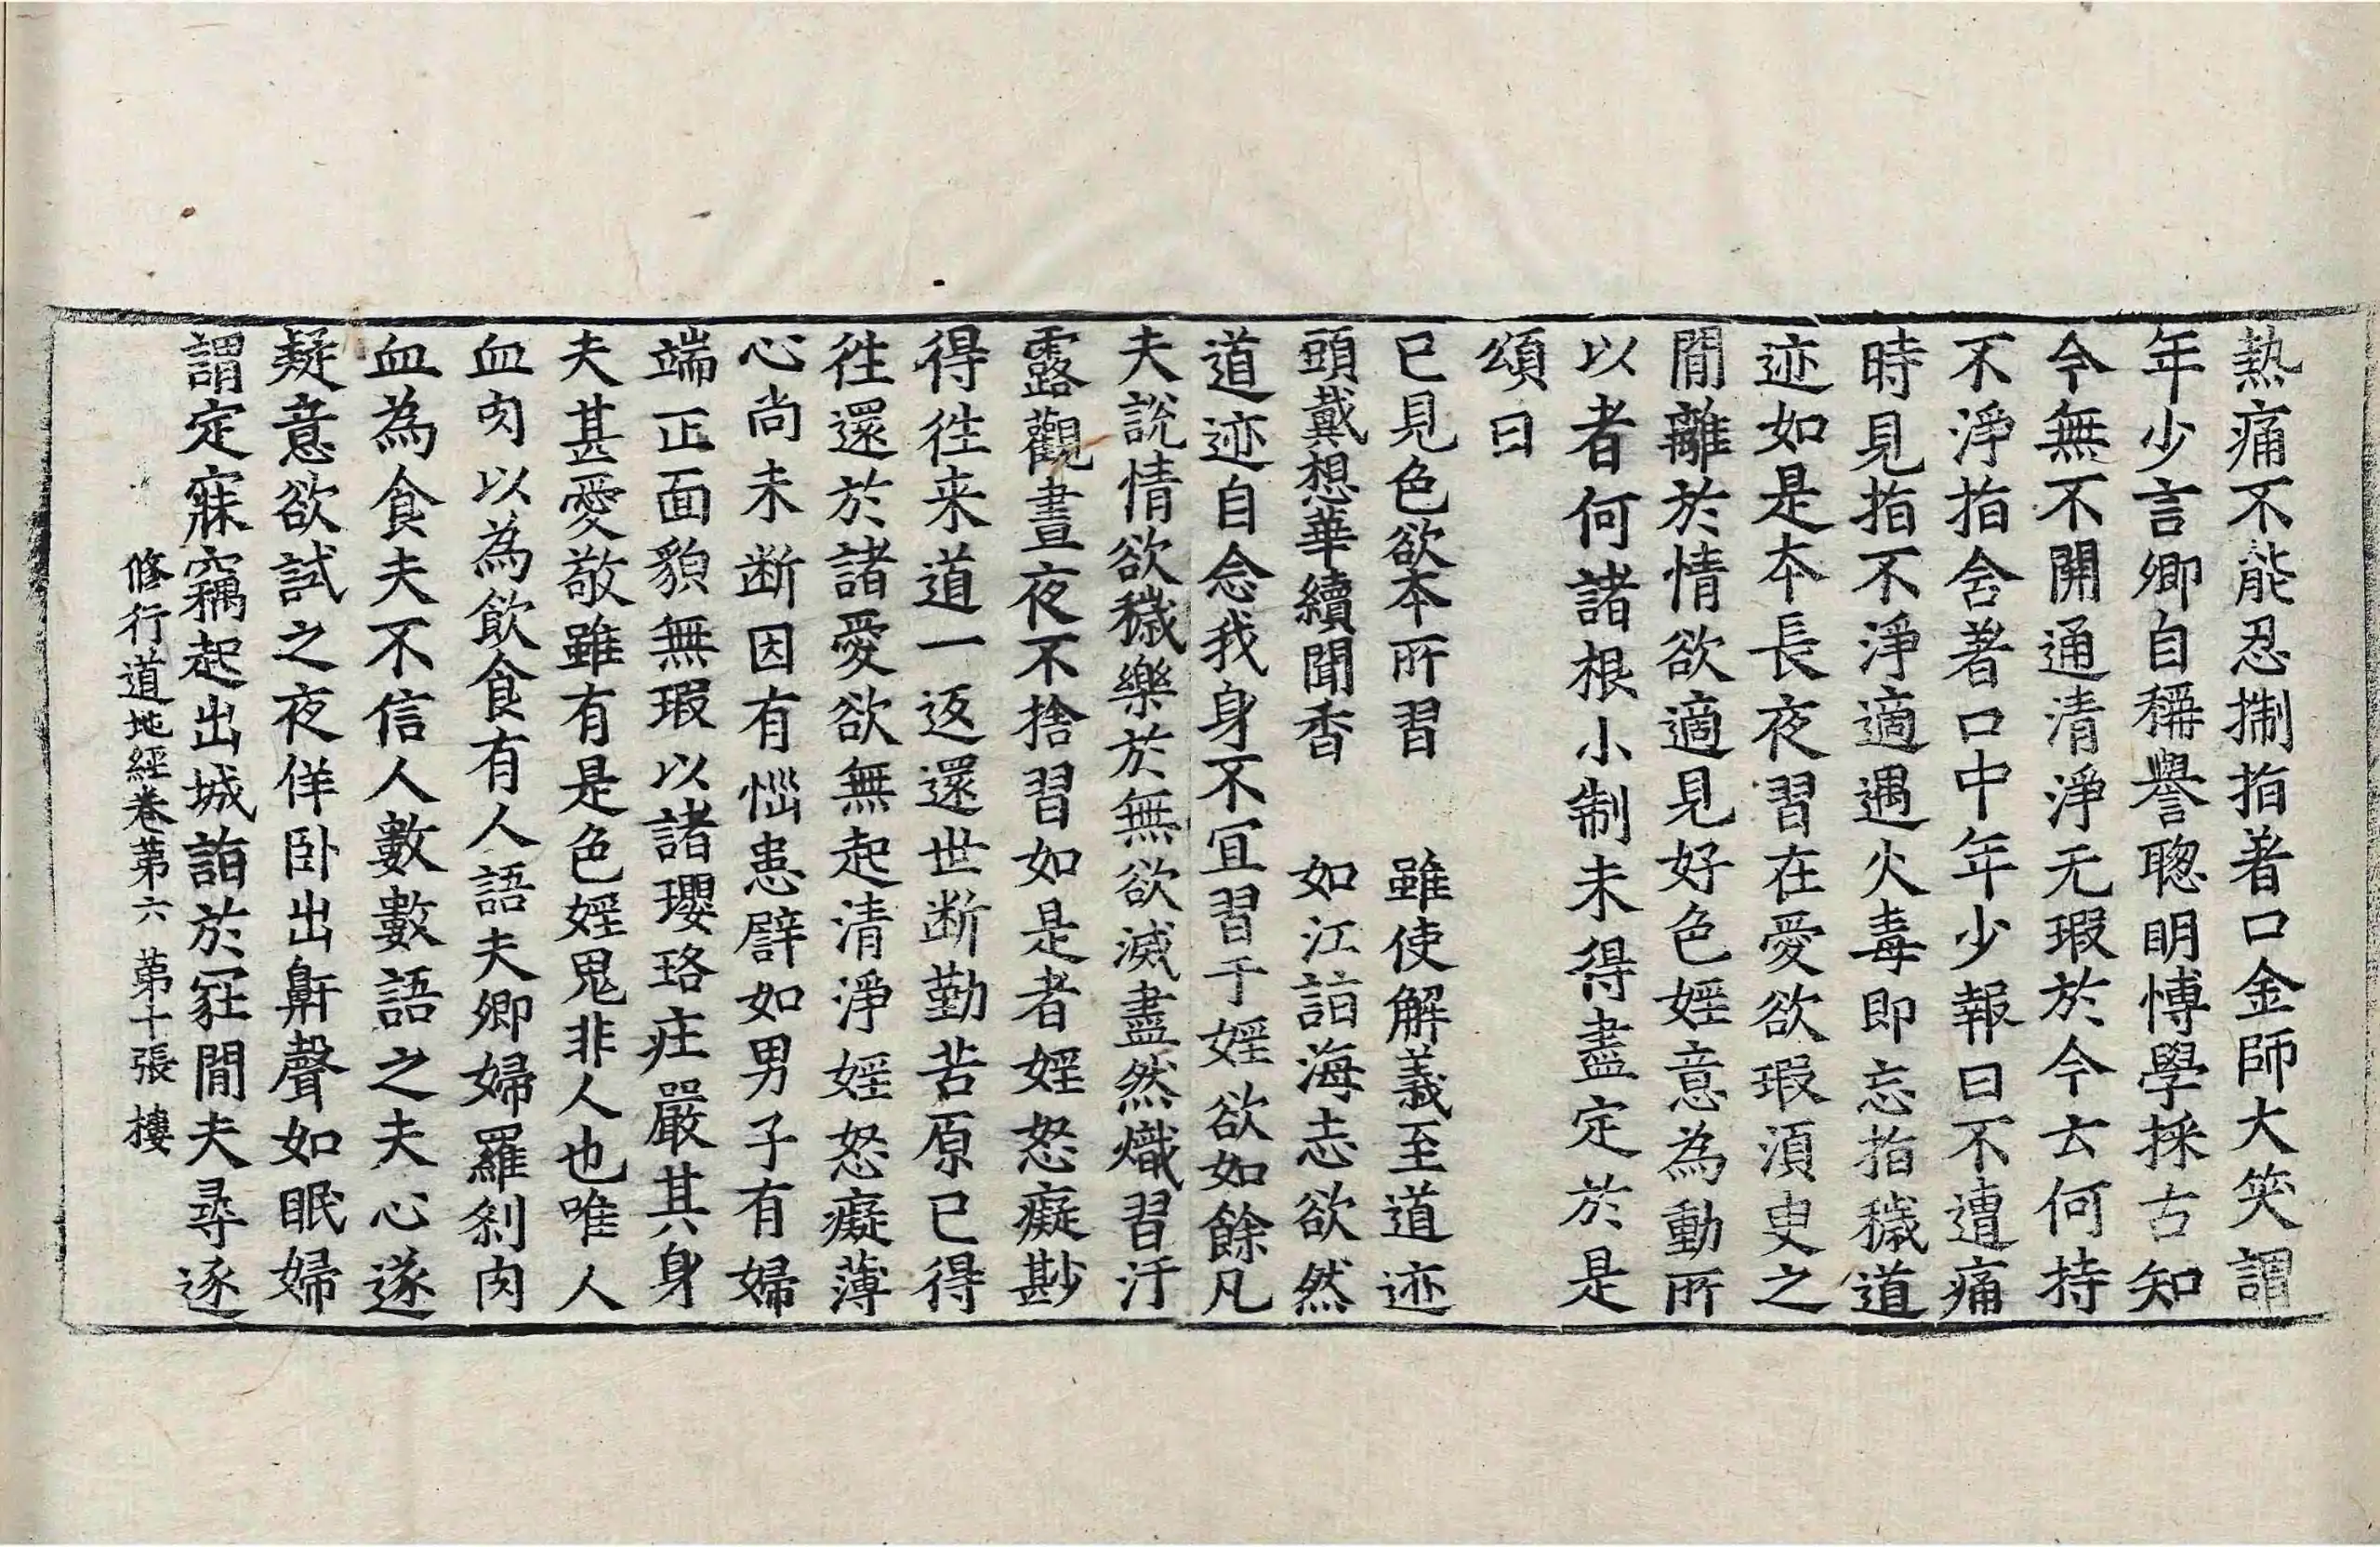 熱痛不能忍掣指著口金師大笑謂
年少言卿自稱譽聦明博學採古知
今無不開通清淨无瑕於今云何持
不淨指含著口中年少報曰不遭痛
時見指不淨適遇火毒即忘指穢道
迹如是本長夜習在愛欲瑕湏臾之
閒離於情欲適見好色婬意為動所
以者何諸根小制未得盡定於是
頌曰
已見色欲本所習　雖使解義至道迹
頭戴想華續聞香　如江詣海志欲然
道迹自念我身不宜習于婬欲如餘凡
夫說情欲穢樂於無欲滅盡然熾習汙
露觀晝夜不捨習如是者婬怒癡尠
得往来道一返還世断勤苦原已得
往還於諸愛欲無起清淨婬怒癡薄
心尚未断因有惱患譬如男子有婦
端正面貌無瑕以諸瓔珞庄嚴其身
夫甚愛敬雖有是色婬鬼非人也唯人
血肉以為飲食有人語夫卿婦羅剎肉
血為食夫不信人數數語之夫心遂
疑意欲試之夜佯卧出鼾聲如眠婦
謂定寐竊起出城詣於冢閒夫尋逐
修行道地經卷苐六　苐十張　樓